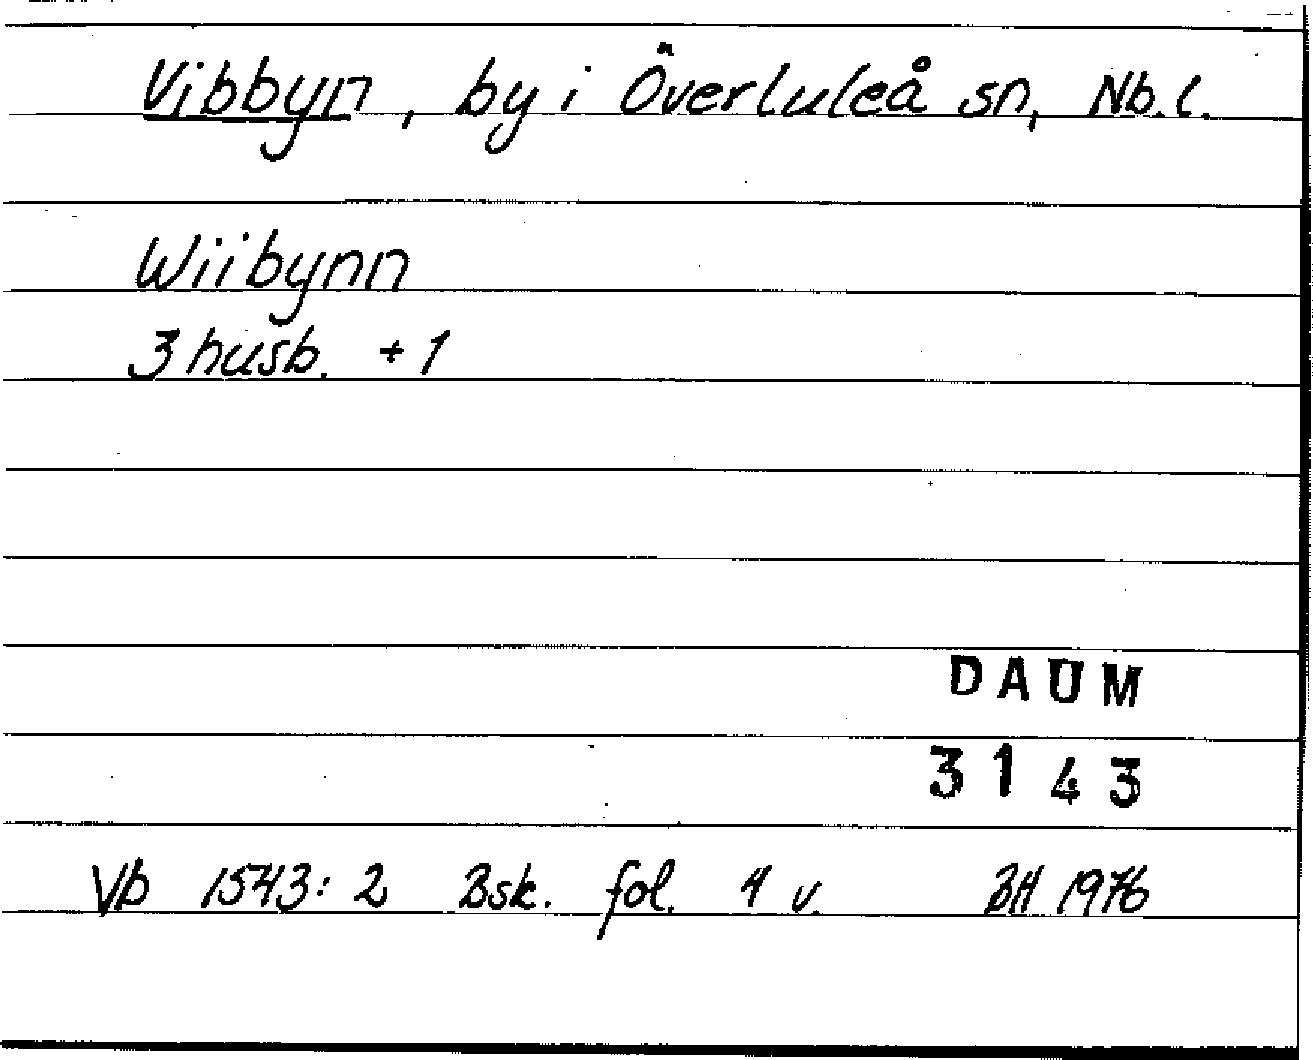 Vibbyn, by i Överluleå sn, Nb.l.
Wiibynn
3 husb. + 1
DAUM
3143
Vb 1543: 2 Bsk. fol. 4 v. BH 1976